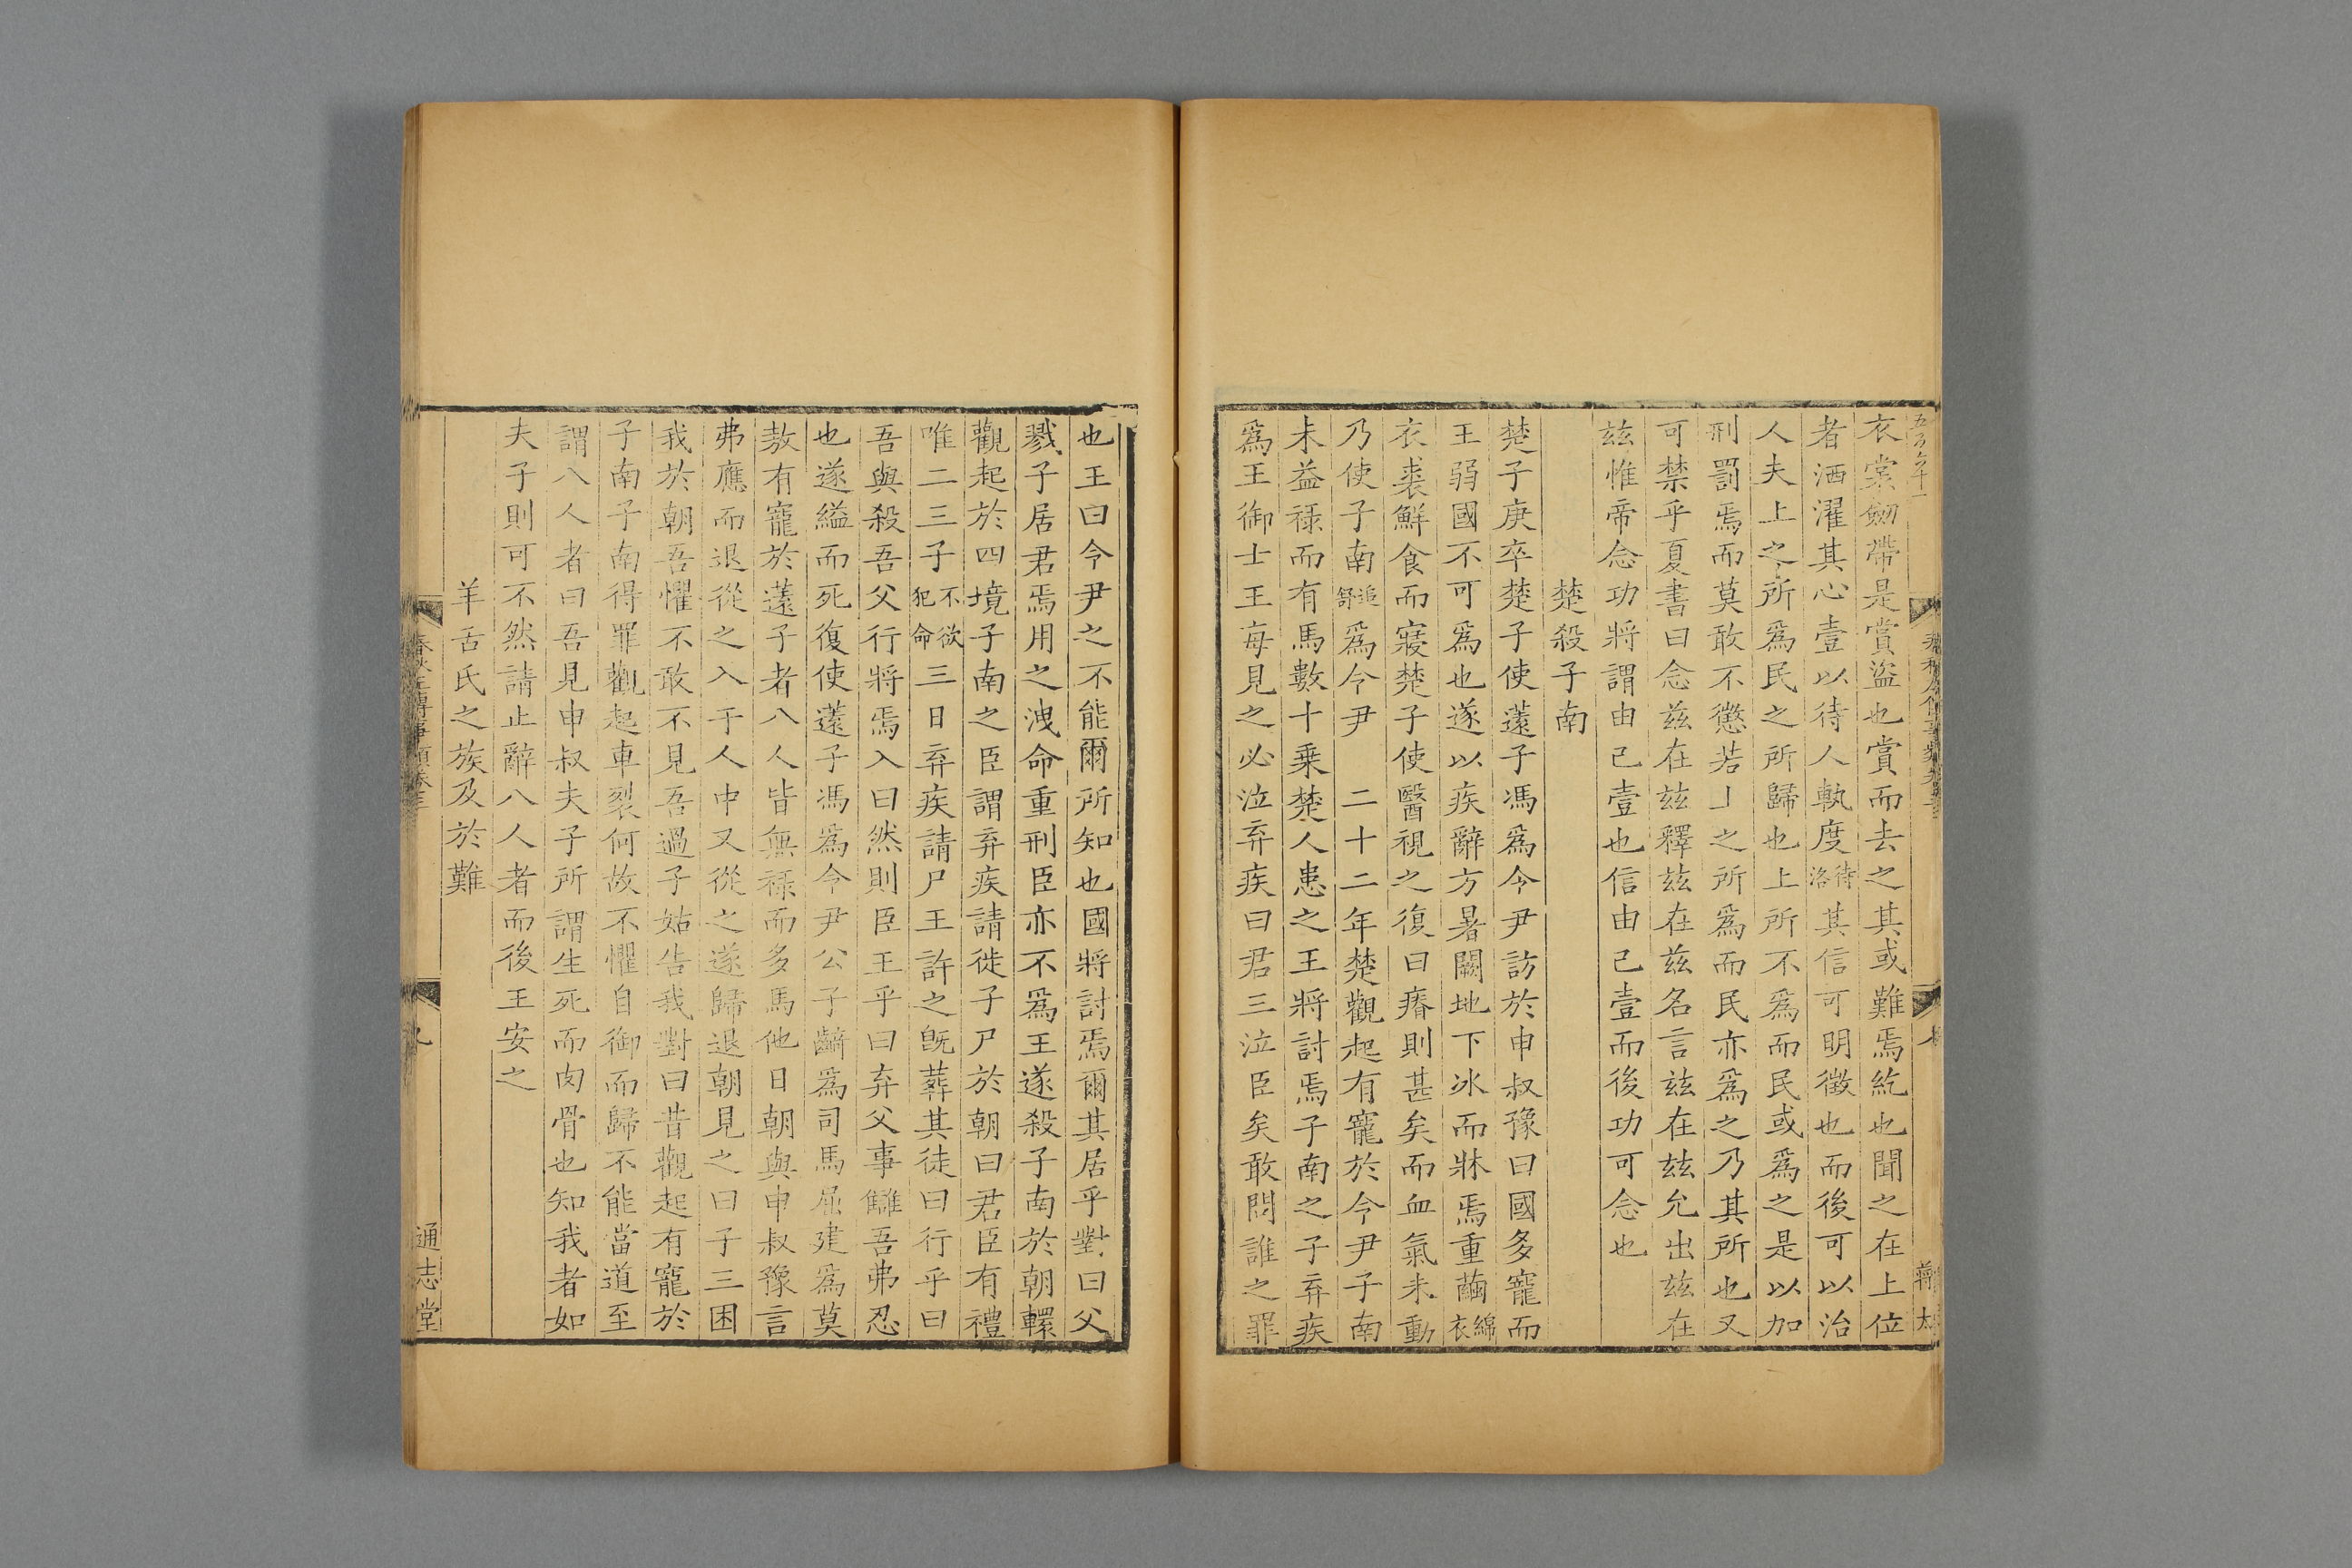 衣裳劒帶是賞盜也賞而去之其或難焉紇也聞之在上位
者洒濯其心壹以待人軌度待洛其信可明徵也而後可以治
人夫上之所爲民之所歸也上所不爲而民或爲之是以加
刑罰焉而莫敢不懲若上之所爲而民亦爲之乃其所也又
可禁乎夏書曰念兹在兹釋兹在兹名言兹在兹允出兹在
兹惟帝念功將謂由己壹也信由己壹而後功可念也
楚殺子南
楚子庚卒楚子使薳子馮爲令尹訪於申叔豫曰國多寵而
王弱國不可爲也遂以疾辭方暑闕地下冰而牀焉重繭綿衣
衣裘鮮食而寢楚子使醫視之復曰瘠則甚矣而血氣未動
乃使子南追舒爲令尹　二十二年楚觀起有寵於令尹子南
未益祿而有馬數十乗楚人患之王將討焉子南之子弃疾
爲王御士王每見之必泣弃疾曰君三泣臣矣敢問誰之罪
也王曰令尹之不能爾所知也國將討焉爾其居乎對曰父
戮子居君焉用之洩命重刑臣亦不爲王遂殺子南於朝轘
觀起於四境子南之臣謂弃疾請徙子尸於朝曰君臣有禮
唯二三子不欲犯命三日弃疾請尸王許之旣葬其徒曰行乎曰
吾與殺吾父行將焉入曰然則臣王乎曰弃父事讎吾弗忍
也遂縊而死復使薳子馮爲令尹公子齮爲司馬屈建爲莫
敖有寵於薳子者八人皆無祿而多馬他日朝與申叔豫言
弗應而退從之入于人中又從之遂歸退朝見之曰子三困
我於朝吾懼不敢不見吾過子姑告我對曰昔觀起有寵於
子南子南得罪觀起車裂何故不懼自御而歸不能當道至
謂八人者曰吾見申叔夫子所謂生死而肉骨也知我者如
夫子則可不然請止辭八人者而後王安之
羊舌氏之族及於難
通志堂